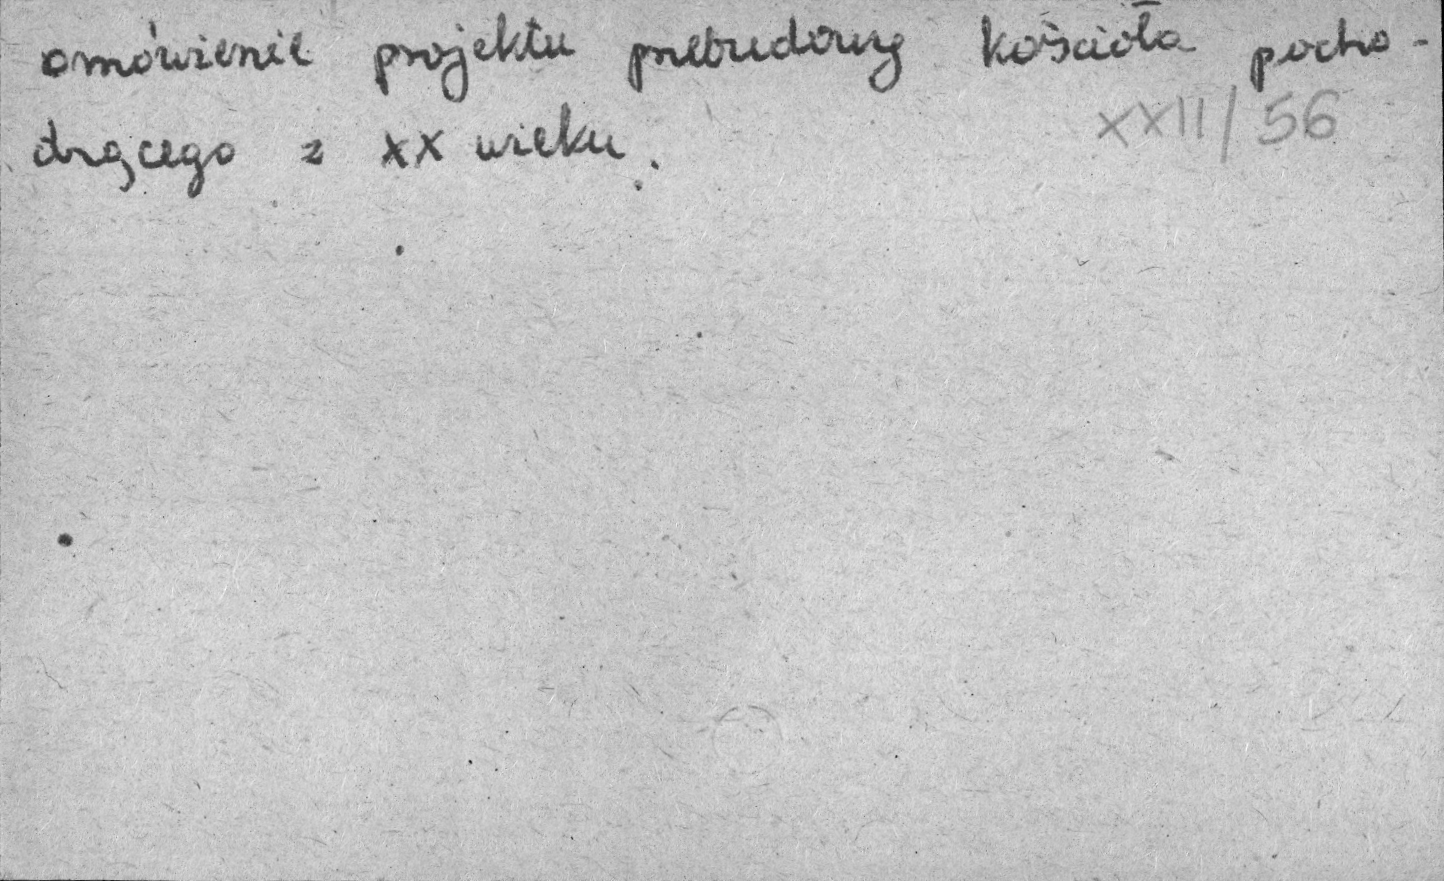 omówienie projektu przebudowy kościoła pocho-
dzącego z XX wieku.
XXII/56